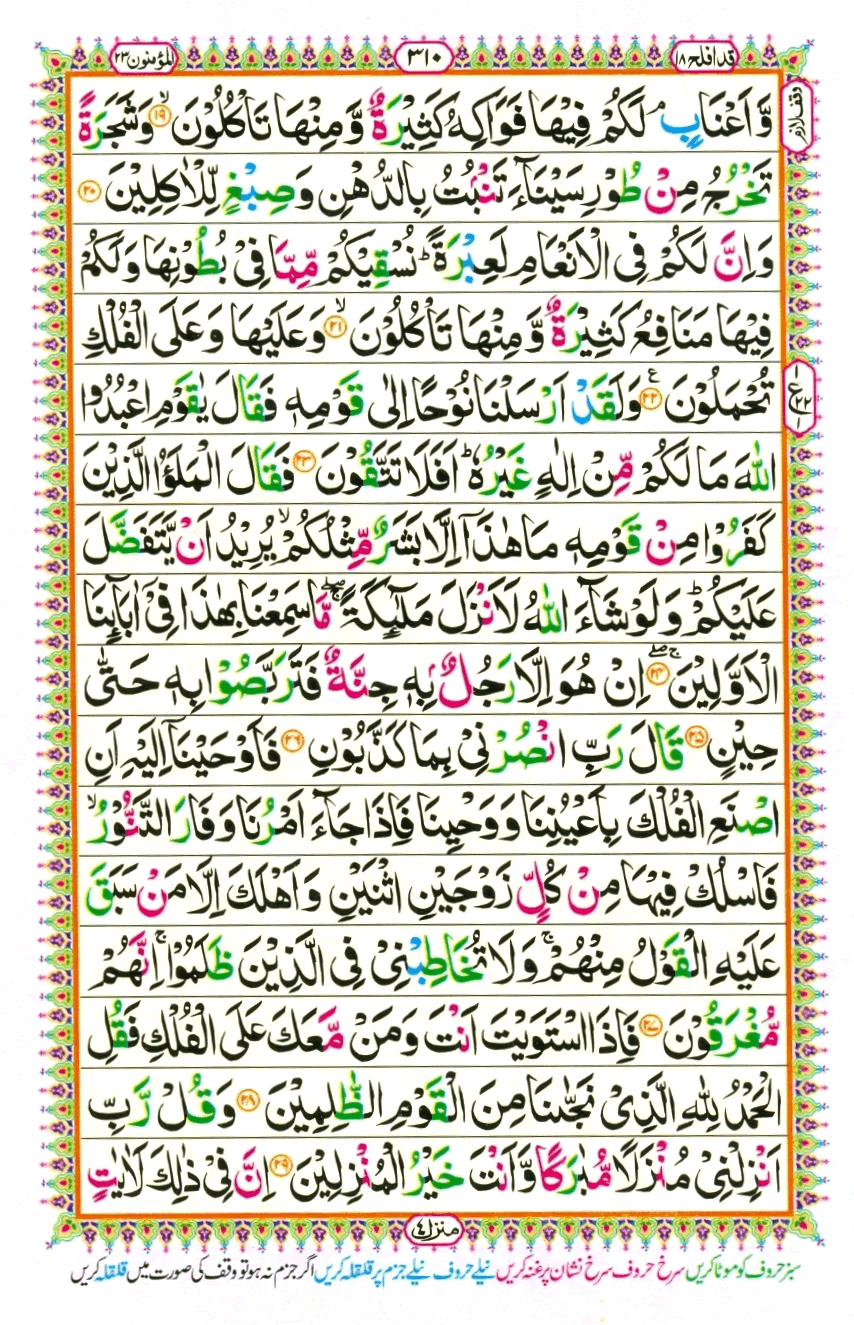 قد افلح ۱۸
۳۱۰
المؤمنون ۲۳
وقف لازم
وَّاَعْنَابٍ ۘ لَكُمْ فِیْهَا فَوَاكِهُ كَثِیْرَةٌ وَّمِنْهَا تَاْكُلُوْنَ ۙ﴿۱۹﴾ وَشَجَرَةً
تَخْرُجُ مِنْ طُوْرِ سَیْنَآءَ تَنْۢبُتُ بِالدُّهْنِ وَصِبْغٍ لِّلْاٰكِلِیْنَ ﴿۲۰﴾
وَاِنَّ لَكُمْ فِی الْاَنْعَامِ لَعِبْرَةً ؕ نُسْقِیْكُمْ مِّمَّا فِیْ بُطُوْنِهَا وَلَكُمْ
فِیْهَا مَنَافِعُ كَثِیْرَةٌ وَّمِنْهَا تَاْكُلُوْنَ ۙ﴿۲۱﴾ وَعَلَیْهَا وَعَلَی الْفُلْكِ
تُحْمَلُوْنَ ﴿۲۲﴾ؑ وَلَقَدْ اَرْسَلْنَا نُوْحًا اِلٰی قَوْمِهٖ فَقَالَ یٰقَوْمِ اعْبُدُوا
۱ ع ۲۲ ۱
اللّٰهَ مَا لَكُمْ مِّنْ اِلٰهٍ غَیْرُهٗ ؕ اَفَلَا تَتَّقُوْنَ ﴿۲۳﴾ فَقَالَ الْمَلَؤُا الَّذِیْنَ
كَفَرُوْا مِنْ قَوْمِهٖ مَا هٰذَاۤ اِلَّا بَشَرٌ مِّثْلُكُمْ ۙ یُرِیْدُ اَنْ یَّتَفَضَّلَ
عَلَیْكُمْ ؕ وَلَوْ شَآءَ اللّٰهُ لَاَنْزَلَ مَلٰٓىِٕكَةً ۖۚ مَّا سَمِعْنَا بِهٰذَا فِیْۤ اٰبَآىِٕنَا
الْاَوَّلِیْنَ ۚۖ﴿۲۴﴾ اِنْ هُوَ اِلَّا رَجُلٌۢ بِهٖ جِنَّةٌ فَتَرَبَّصُوْا بِهٖ حَتّٰی
حِیْنٍ ﴿۲۵﴾ قَالَ رَبِّ انْصُرْنِیْ بِمَا كَذَّبُوْنِ ﴿۲۶﴾ فَاَوْحَیْنَاۤ اِلَیْهِ اَنِ
اصْنَعِ الْفُلْكَ بِاَعْیُنِنَا وَوَحْیِنَا فَاِذَا جَآءَ اَمْرُنَا وَفَارَ التَّنُّوْرُ ۙ
فَاسْلُكْ فِیْهَا مِنْ كُلٍّ زَوْجَیْنِ اثْنَیْنِ وَاَهْلَكَ اِلَّا مَنْ سَبَقَ
عَلَیْهِ الْقَوْلُ مِنْهُمْ ۚ وَلَا تُخَاطِبْنِیْ فِی الَّذِیْنَ ظَلَمُوْا ۚ اِنَّهُمْ
مُّغْرَقُوْنَ ﴿۲۷﴾ فَاِذَا اسْتَوَیْتَ اَنْتَ وَمَنْ مَّعَكَ عَلَی الْفُلْكِ فَقُلِ
الْحَمْدُ لِلّٰهِ الَّذِیْ نَجّٰىنَا مِنَ الْقَوْمِ الظّٰلِمِیْنَ ﴿۲۸﴾ وَقُلْ رَّبِّ
اَنْزِلْنِیْ مُنْزَلًا مُّبٰرَكًا وَّاَنْتَ خَیْرُ الْمُنْزِلِیْنَ ﴿۲۹﴾ اِنَّ فِیْ ذٰلِكَ لَاٰیٰتٍ
منزل ۴
سبز حروف کو موٹا کریں سرخ حروف سرخ نشان پر غنہ کریں نیلے حروف نیلے جزم پر قلقلہ کریں اگر جزم نہ ہو تو وقف کی صورت میں قلقلہ کریں